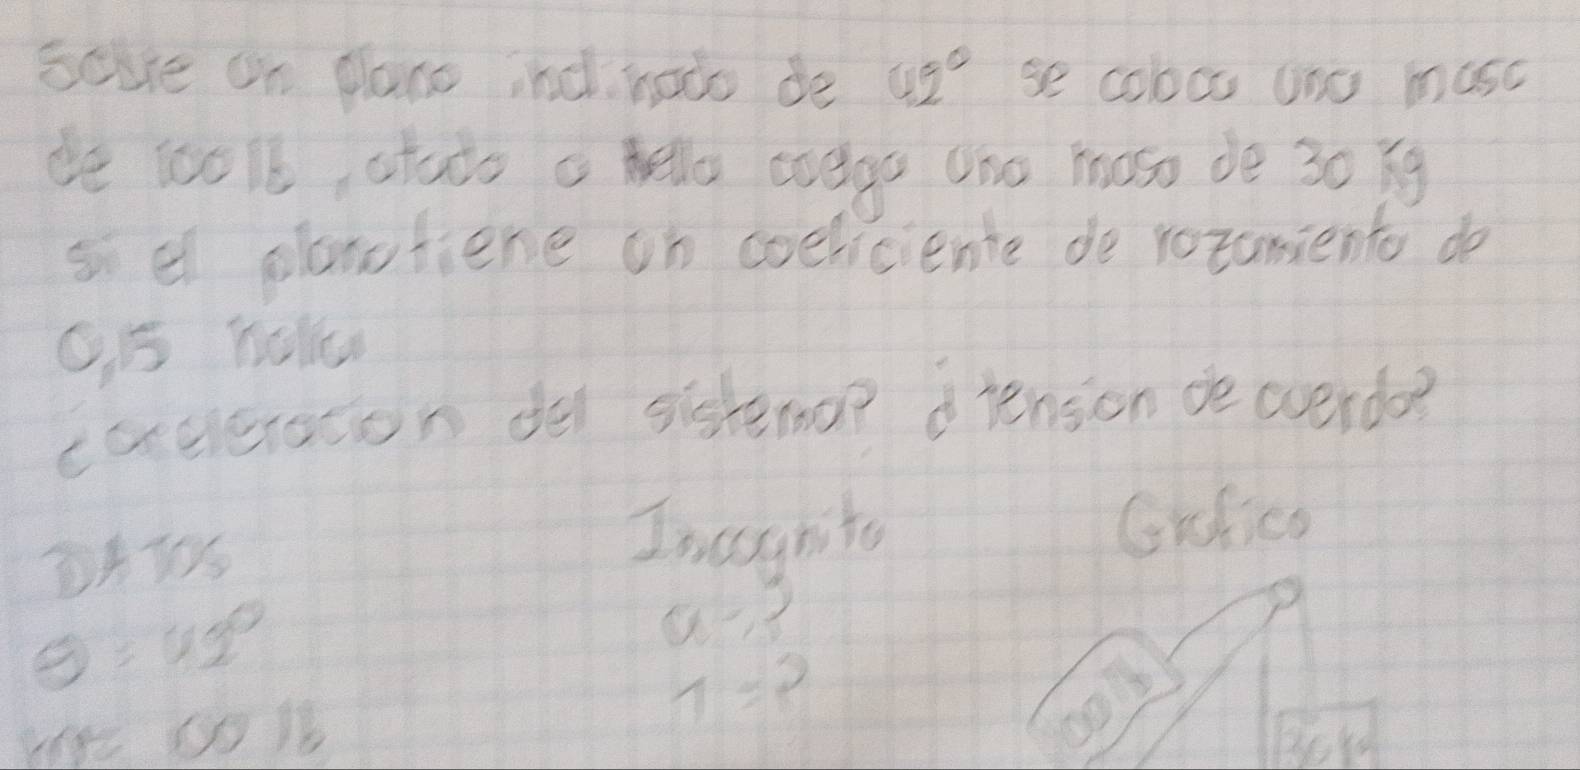 Sobre un plano inclinado de 42° se coloca una masa
de 100 lb, atado a ella coelga una masa de 30 Kg
si el plano tiene un coeficiente de rozamiento de
0,15 halla
¿aceleracion del sistema? ¿tension de cuerda?
DATOS Incognita Grafico
θ = 42° a = ?
m= 100 lb T = ?
100 lb
30 Kg